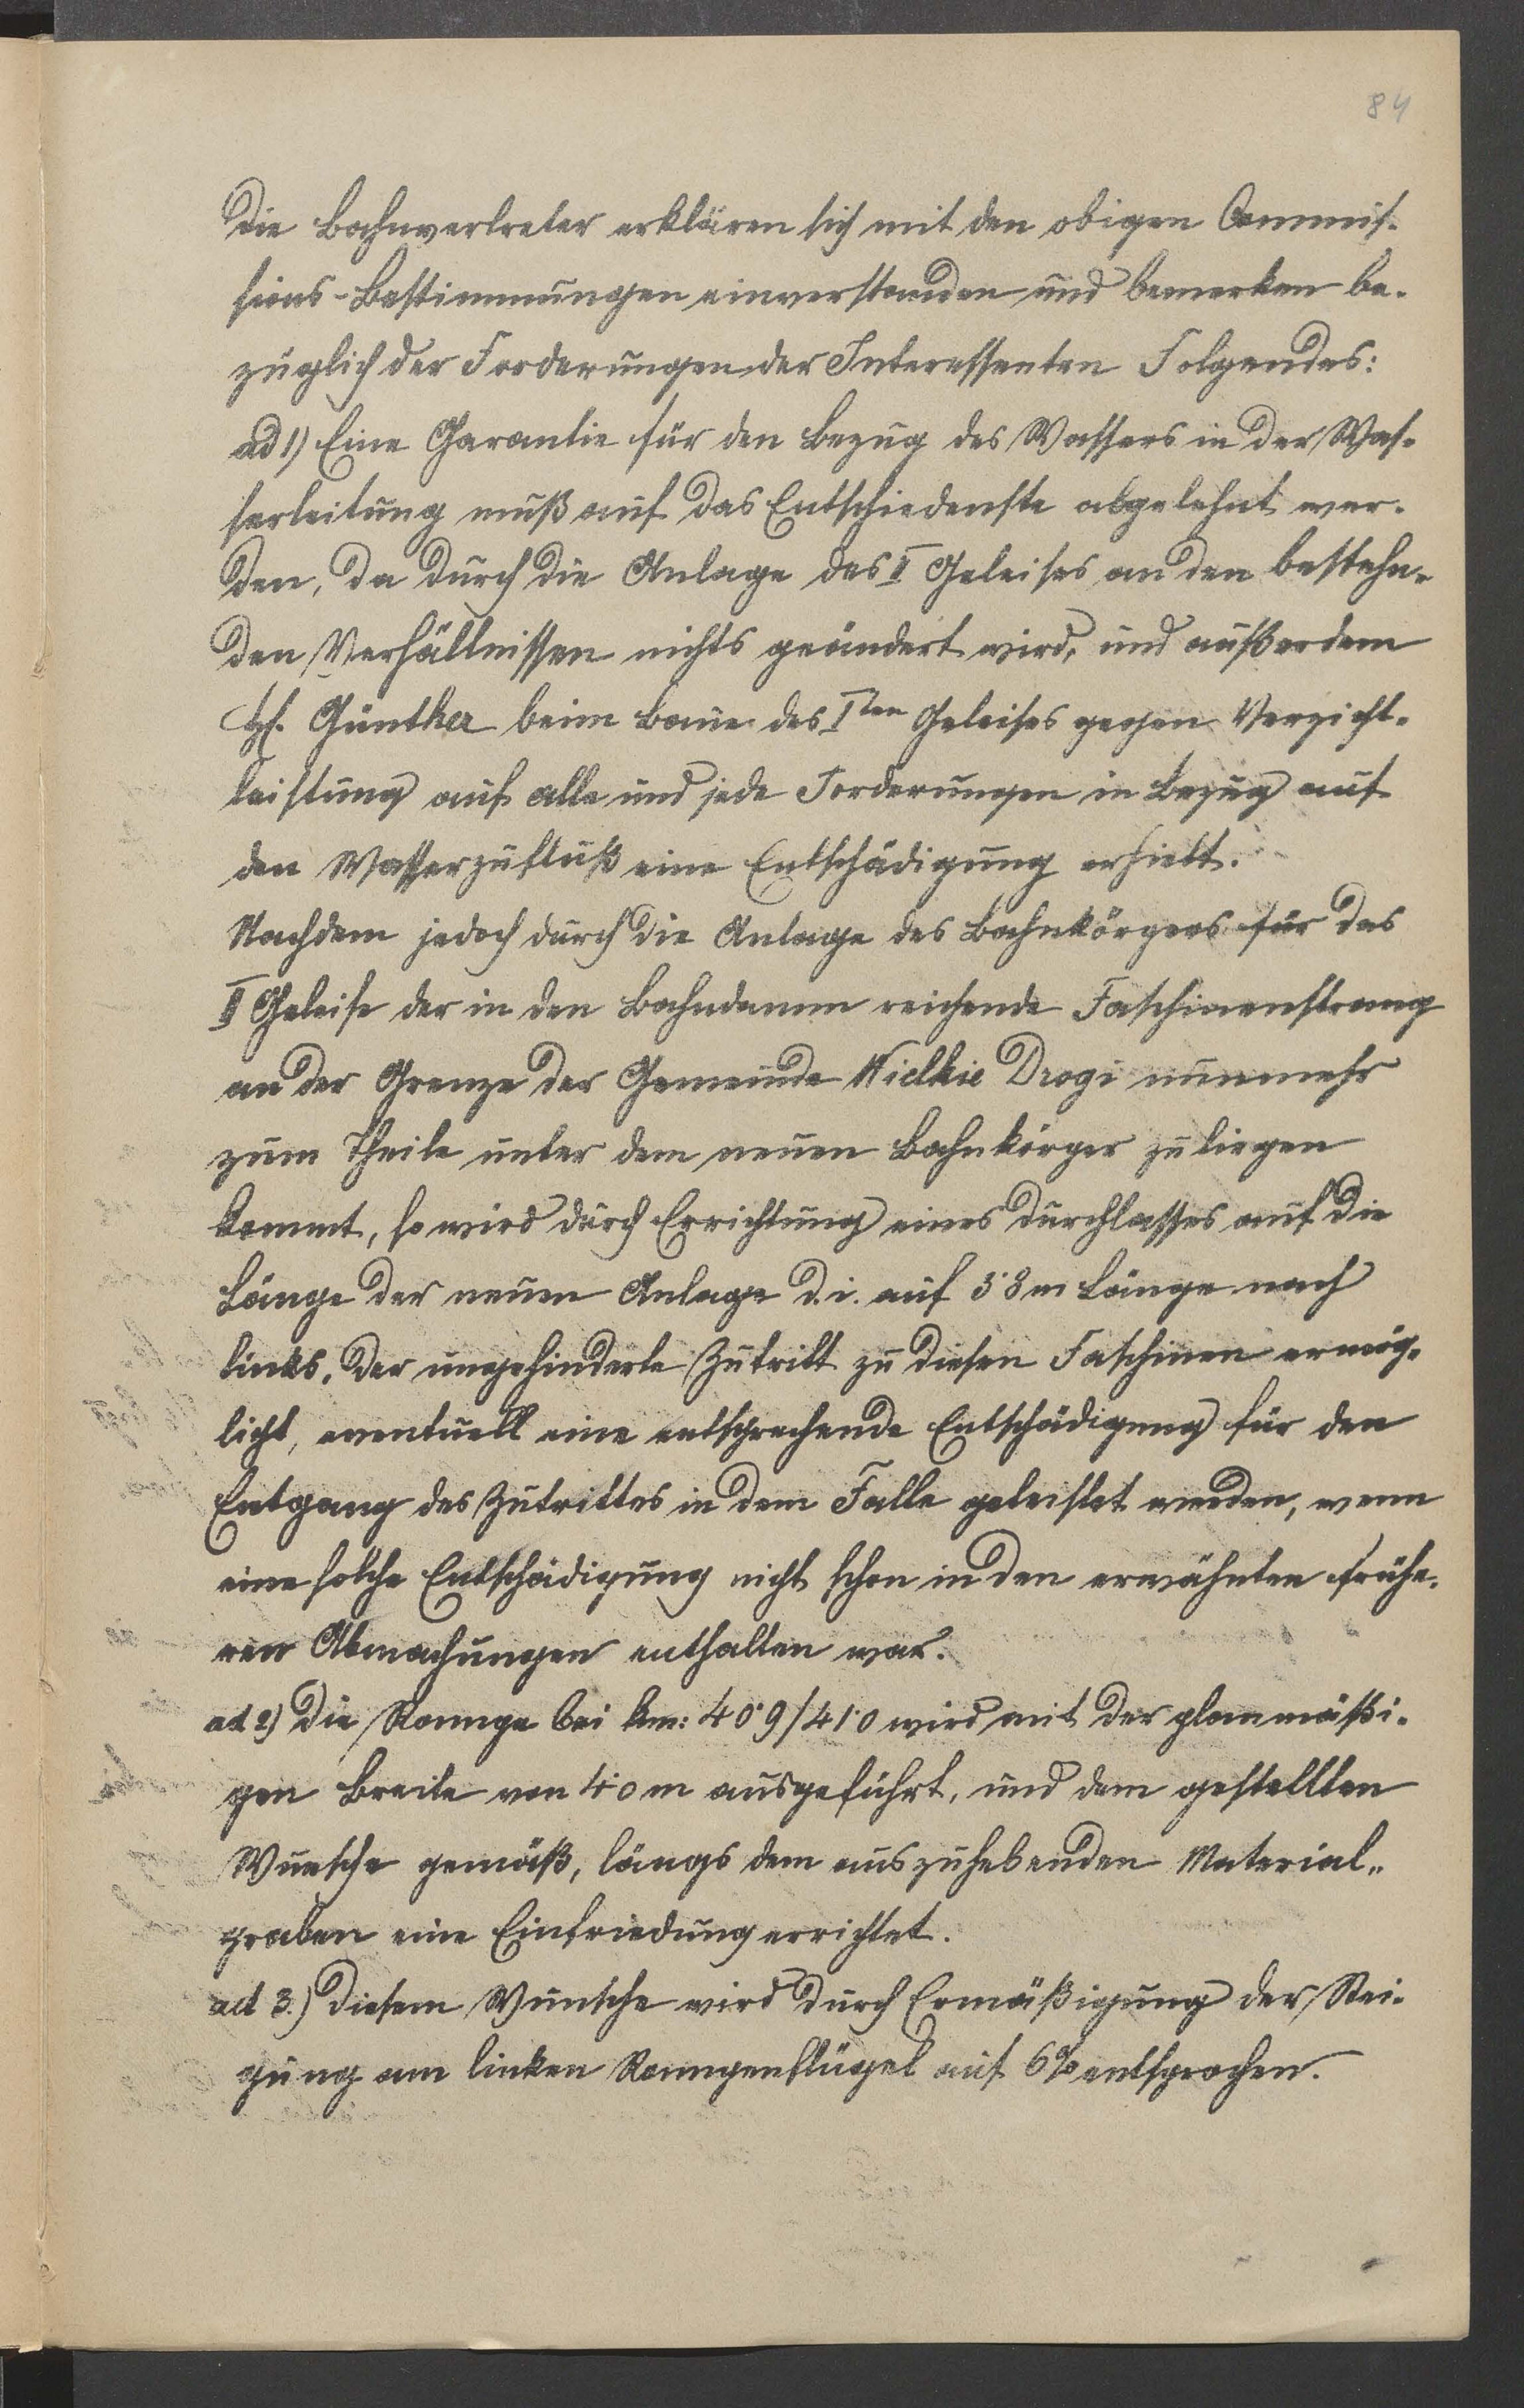 84
Die Bahnvertreter erklären sich mit den obigen Commis-
sions-Bestimmungen einverstanden und bemerken be-
züglich der Forderungen der Interessenten Folgendes:
ad 1) Eine Garantie für den Bezug des Wassers in der Was-
serleitung muß auf das Entschiedenste abgelehnt wer-
den, da durch die Anlage des II Geleises an den bestehn-
den Verhältnissen nichts geändert wird, und außerdem
H. Günther beim Baue des I ten Geleises gegen Verzicht-
leistung auf alle und jede Forderungen in Bezug auf
den Wasserzufluß eine Entschädigung erhielt.
Nachdem jedoch durch die Anlage des Bahnkörpers für das
II Geleise der in den Bahndamm reichende Faschinenstrang
an der Grenze der Gemeinde Wielkie Drogi nunmehr
zum Theile unter dem neuen Bahnkörper zu liegen
kommt, so wird durch Errichtung eines Durchlasses auf die
Länge der neuen Anlage d. i. auf 3·8 m Länge nach
links, der ungehinderte Zutritt zu diesen Faschinen ermög-
licht, eventuell eine entsprechende Entschädigung für den
Entgang des Zutrittes in dem Falle geleistet werden, wenn
eine solche Entschädigung nicht schon in den erwähnten frühe-
ren Abmachungen enthalten war.
ad 2) Die Rampe bei km: 40·9/41·0 wird mit der planmäßi-
gen Breite von 4·0 m ausgeführt, und dem gestellten
Wunsche gemäß, längs dem auszuhebenden Material-
graben eine Einfriedung errichtet.
ad 3.) Diesem Wunsche wird durch Ermäßigung der Stei-
gung am linken Rampenflügel auf 6% entsprochen.